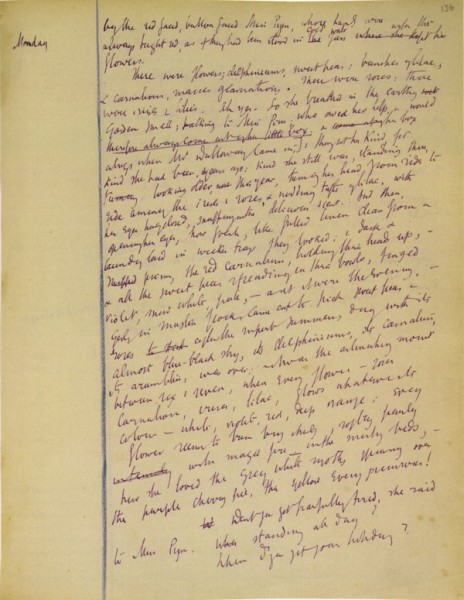 136
Monday
by the red faced, button faced Miss Pym, whose hands were
always bright red, as if they had been stood in cold water with the
flowers.
There were flowers; delphiniums, sweet peas; bunches of lilac,
& carnations, masses of carnations. There were roses: there
were irises & lilies. Ah yes. So she breathed in the earthy
garden smell; talking to Miss Pym; who owed her help, & would
therefore always come out of her little box
always when Mrs Dalloway came in; & thought her kind, for
kind she had been, years ago; kind she still was, standing there,
looking older, this year, turning her head, from side to
side among the irises & roses, & nodding tufts of lilac, with
her eyes half closed, snuffing in the delicious scent. And then,
opening her eyes, how fresh, like frilled linen clean from a
laundry laid in wicker trays they looked; & dark &
prim, the red carnations, holding their heads up, -
& all the sweet peas spreading in their bowls, tinged
violet, snow white, pale, - as if it were the evening, -
girls in muslin frocks came out to pick sweet peas, &
roses after the superb summers day with its
almost blue-black sky, its delphiniums, its carnations,
its arum lilies, was over; & it was the moment
between six & seven, when every flower - roses
carnations, irises, lilac, glows whatever its
colour - white, violet, red, deep orange: every
flower seems to burn by itself, softly, purely
in the misty beds, -
how she loved the grey white moths spinning over
the purple cherry pie, the yellow evening primroses!
Don't you get fearfully tired, she said
to Miss Pym. standing all day?
When d'you get your holiday?